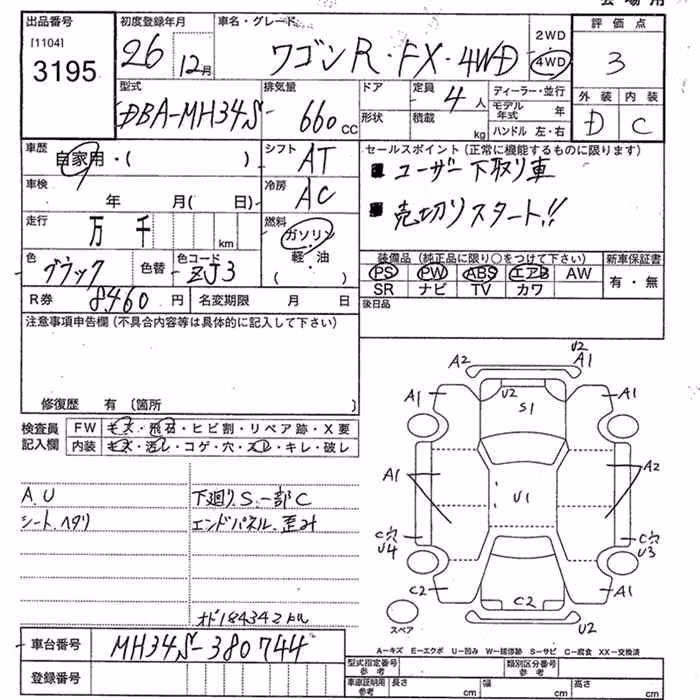 会場用
出品番号
[1104]
3195
初度登録年月
26 12月
車名・グレード
ワゴンR・FX・4WD
2WD
4WD
評価点
3
外装 内装
D C
型式
DBA-MH34S
排気量
660 CC
ドア
形状
定員
4 人
積載
kg
ディーラー・並行
モデル年式 年
ハンドル 左・右
車歴
自家用・( )
シフト
AT
車検
年 月( 日)
冷房
AC
走行
万 千 km
燃料
ガソリン
軽・油
( )
色
ブラック
色替
色コード
ZJ3
R券 8460 円
名変期限 月 日
セールスポイント(正常に機能するものに限ります)
ユーザー下取り車
売切りスタート!!
装備品(純正品に限り○をつけて下さい)
PS PW ABS エアB AW
SR ナビ TV カワ
新車保証書
有・無
後日品
注意事項申告欄(不具合内容等は具体的に記入して下さい)
修復歴 有 〔箇所 〕
検査員記入欄
FW キズ・飛石・ヒビ割・リペア跡・X要
内装 キズ・汚レ・コゲ・穴・スレ・キレ・破レ
A.U 下廻りS.一部C
シート.ヘタリ エンドパネル.歪み
オド184342キロ
車台番号 MH34S-380744
登録番号
A2 U2 A1
A1 U2 S1 A1
A1 U1 A2
C穴 U4 C穴 U3
C2 C2 A1
U2
スペア
A−キズ E−エクボ U−凹み W−補修跡 S−サビ C−腐食 XX−交換済
型式指定番号 参考
類別区分番号 参考
車庫証明用 参考 長さ cm 幅 cm 高さ cm